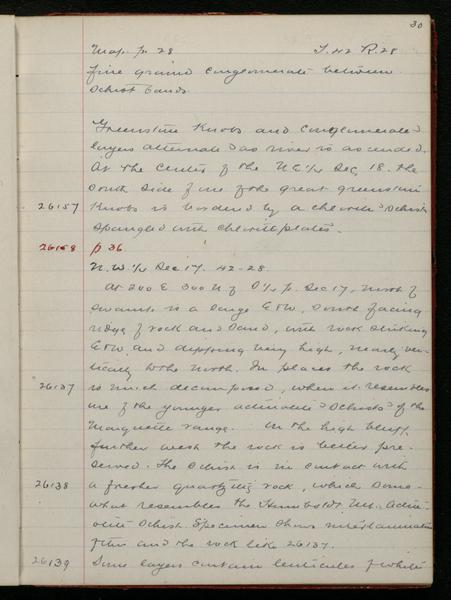 30
Map. p. 28 T. 42 R. 28
fine grained conglomerate between
schist bands
Greenstone Knobs and conglomerate
layers alternate as river is ascended.
At the center of the N.E. 1/4 Sec. 18. the
south side of one of the great greenstone
26157 Knobs is bordered by a chlorite schist
spangled with chlorite plates.
26158 p 36
N.W. 1/4 Sec 17. 42-28.
At 200 E 300 N of Sec 17, north of
swamp is a large E & W, south facing
ridge of rock and sand, with rock striking
E & W and dipping very high, nearly ver-
tically to the north. In places the rock
26137 is much decomposed, when it resembles
one of the younger actinolite schists of the
Marquette range. In the high bluff
further west the rock is better pre-
served. The schist is in contact with
26138 a fresher quartzitic rock, which some-
what resembles the Humboldt Mt. actin-
olite schist. Specimen shows
and the rock like 26137.
26139 Some layers contain lenticules of white